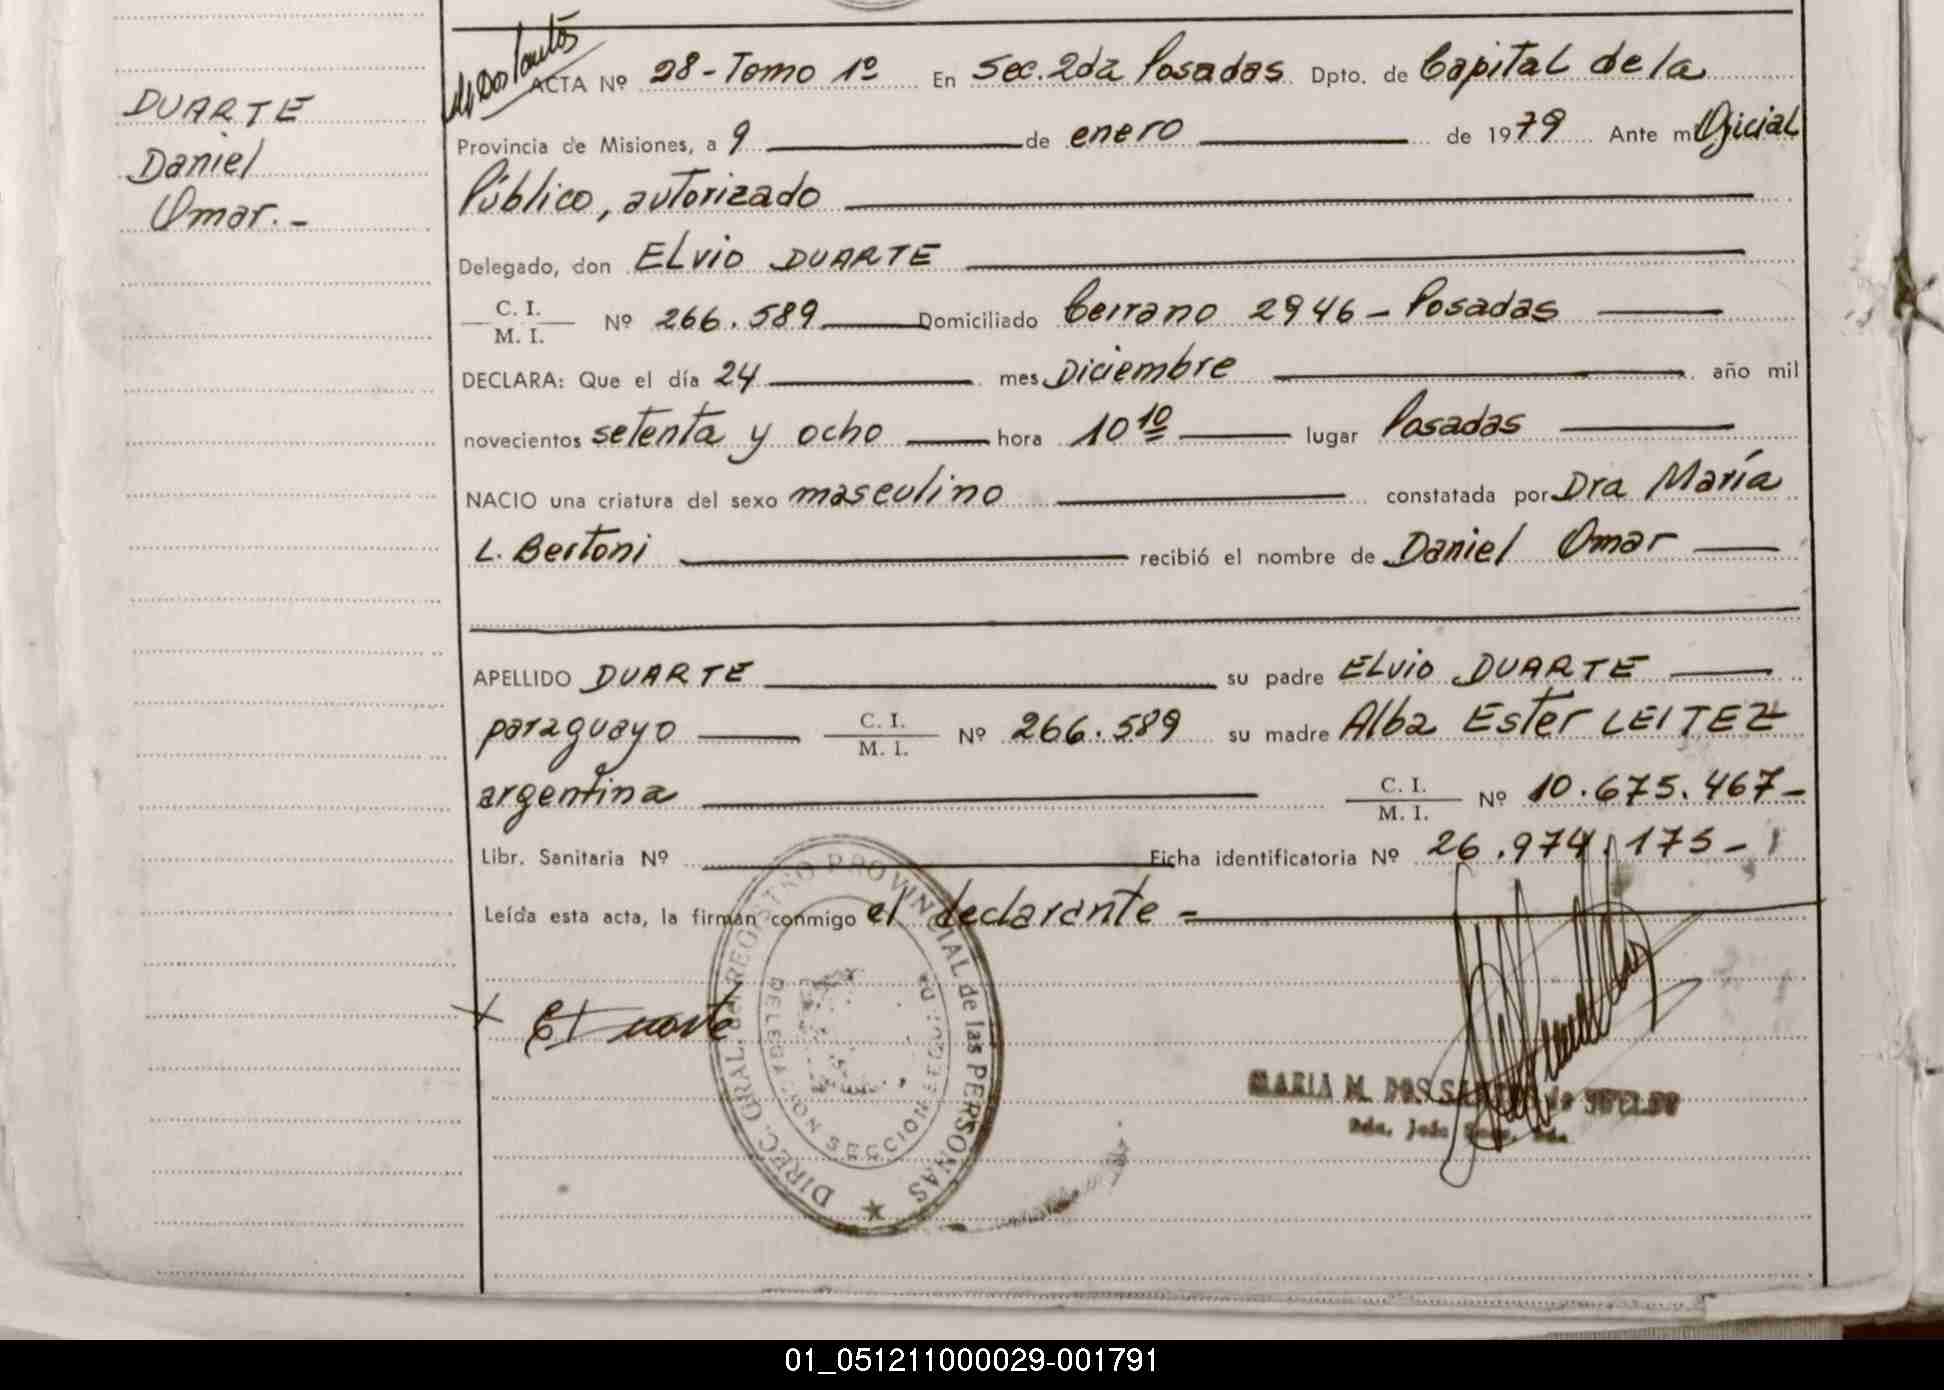 DUARTE
Daniel
Omar.-
M Dos Santos
ACTA Nº 28-Tomo 1º En Sec. 2da Posadas Dpto. de Capital de la
Provincia de Misiones, a 9 de enero de 1979 Ante mi Oficial
Público, autorizado
Delegado, don ELVIO DUARTE
C. I.
M. I. Nº 266.589 Domiciliado Cerrano 2946 - Posadas
DECLARA: Que el día 24 mes Diciembre año mil
novecientos setenta y ocho hora 10 10 lugar Posadas
NACIO una criatura del sexo masculino constatada por Dra María
L. Bertoni recibió el nombre de Daniel Omar
APELLIDO DUARTE su padre ELVIO DUARTE
paraguayo C. I. M. I. Nº 266.589 su madre Alba Ester LEITEZ
argentina C. I. M. I. Nº 10.675.467-
Libr. Sanitaria Nº Ficha identificatoria Nº 26.974.175-
Leída esta acta, la firman conmigo el declarante =
DIREC. GRAL. del REGISTRO PROVINCIAL de las PERSONAS
DELEGACION SECCION SEGUNDA
MARIA M. DOS SANTOS de
01_051211000029-001791